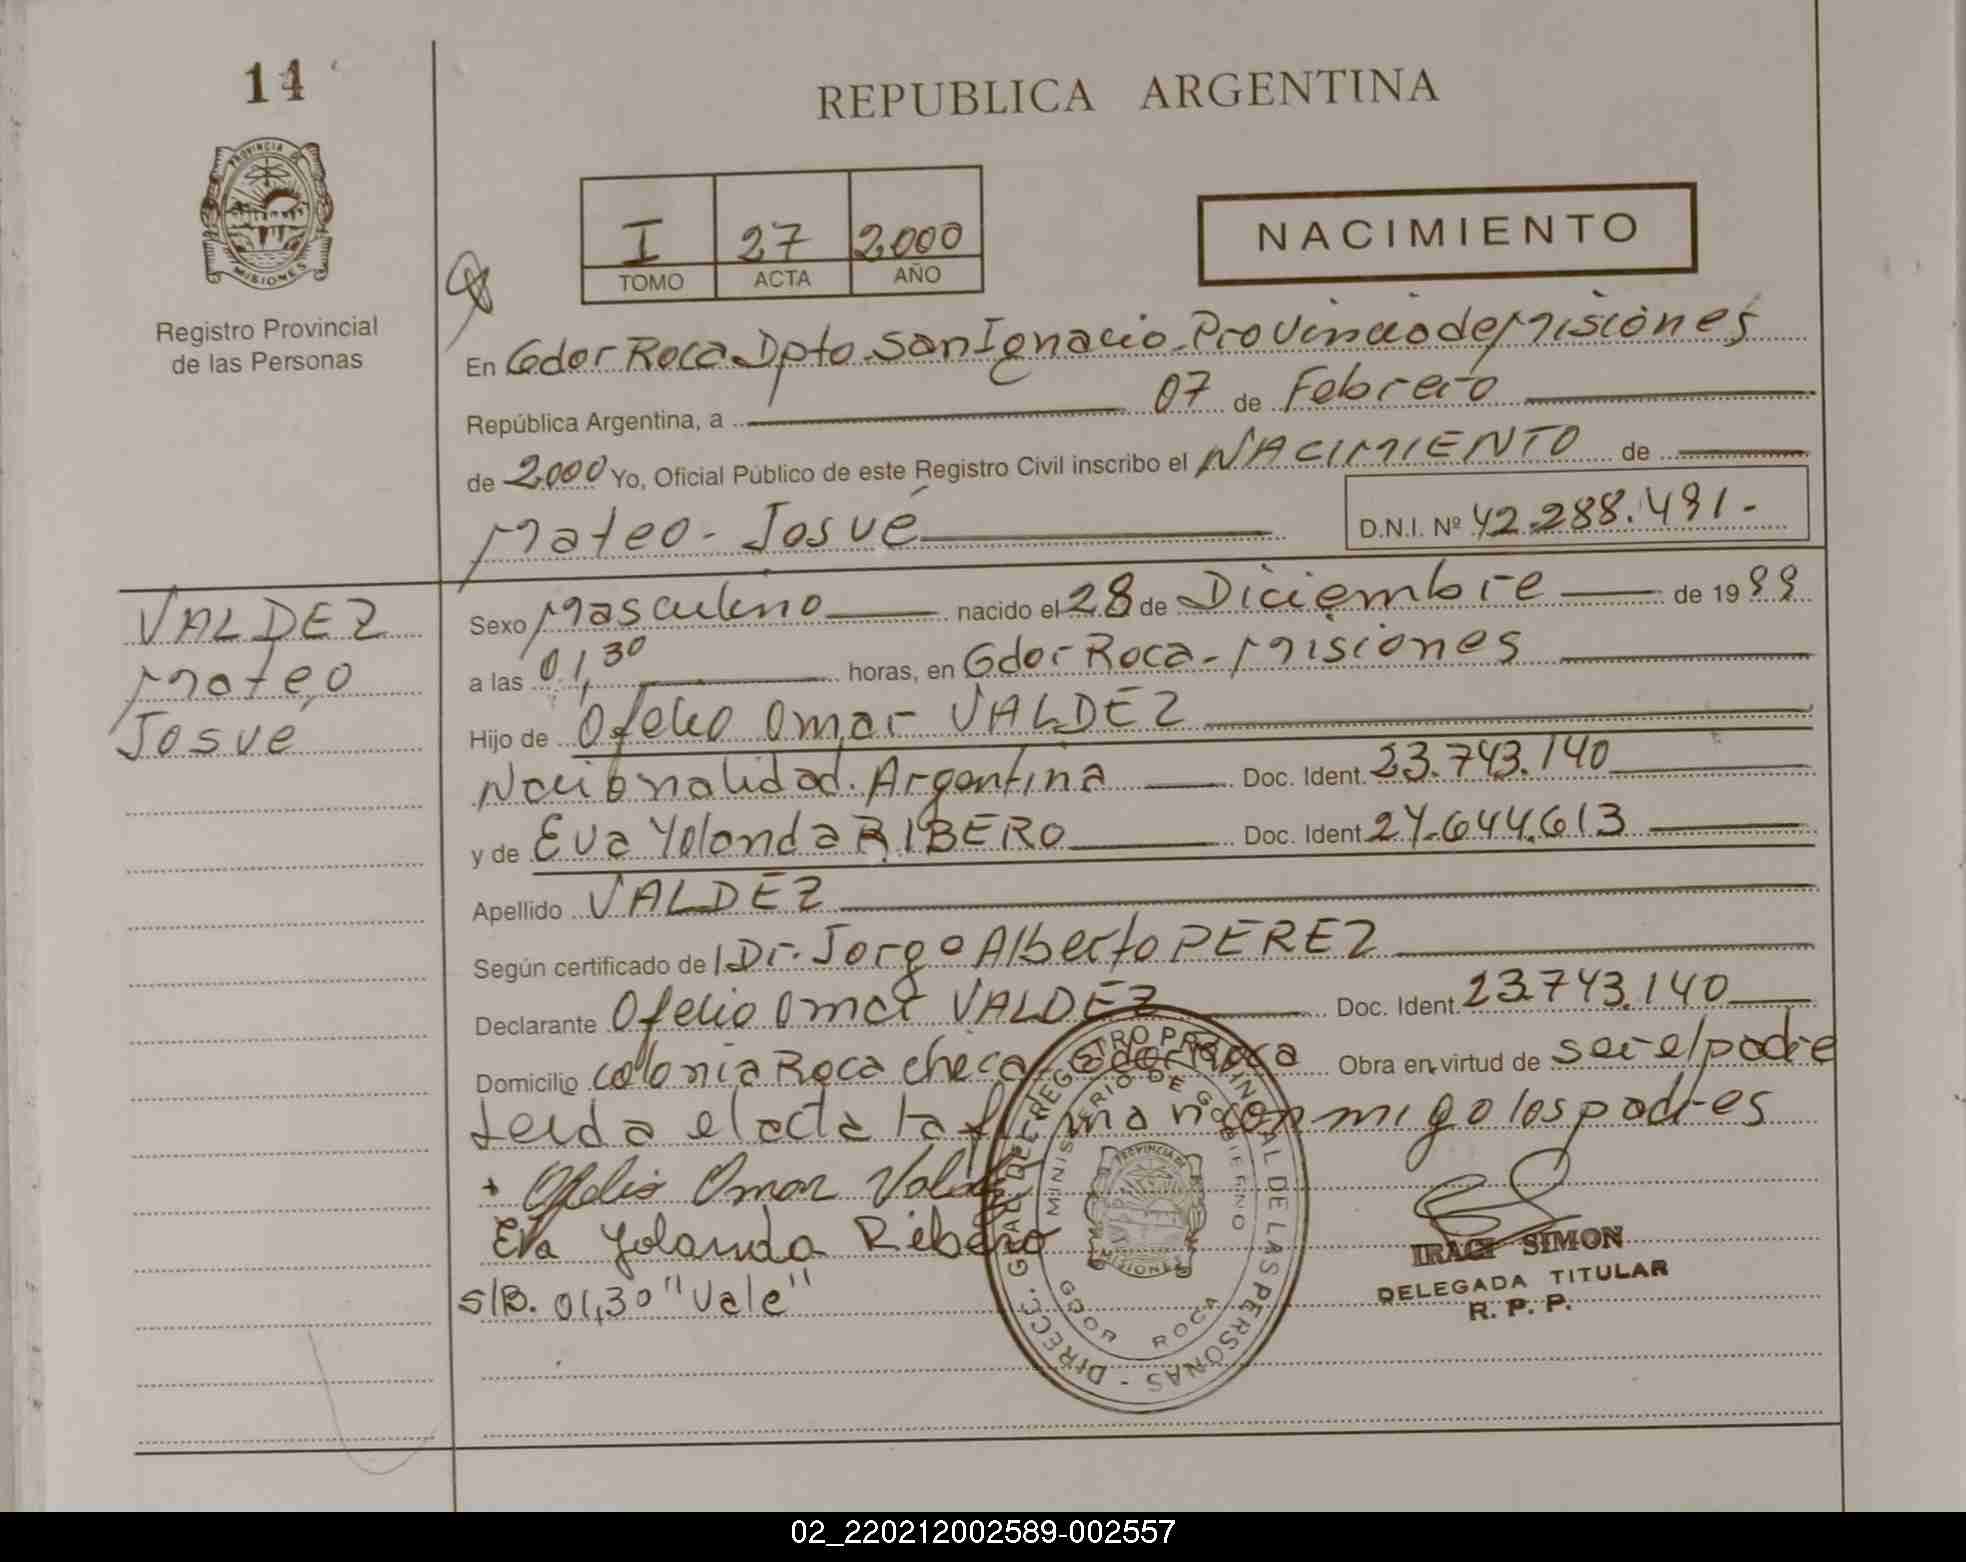 14
REPUBLICA ARGENTINA
PROVINCIA DE
MISIONES
Registro Provincial
de las Personas
I 27 2000
TOMO ACTA AÑO
NACIMIENTO
En Gdor Roca Dpto San Ignacio Provincia de Misiones
República Argentina, a 07 de Febrero
de 2.000 Yo, Oficial Público de este Registro Civil inscribo el NACIMIENTO de
Mateo - Josué
D.N.I. Nº 42.288.491.-
VALDEZ
Mateo
Josué
Sexo Masculino nacido el 28 de Diciembre de 1999
a las 01,30 horas, en Gdor Roca - Misiones
Hijo de Ofelio Omar VALDEZ
Nacionalidad Argentina Doc. Ident. 23.743.140
y de Eva Yolanda RIBERO Doc. Ident. 24.644.613
Apellido VALDEZ
Según certificado de Dr. Jorge Alberto PEREZ
Declarante Ofelio Omar VALDEZ Doc. Ident. 23.743.140
Domicilio colonia Roca checa Gdor Roca Obra en virtud de ser el padre
Leida el acta la firman conmigo los padres
Ofelio Omar Valdez
Eva Yolanda Ribero
S/B. 01,30 "Vale"
DIRECC. GRAL DEL REGISTRO PROVINCIAL DE LAS PERSONAS -
MINISTERIO DE GOBIERNO
GDOR ROCA
PROVINCIA DE
MISIONES
SIMON
DELEGADA TITULAR
R. P. P.
02_220212002589-002557